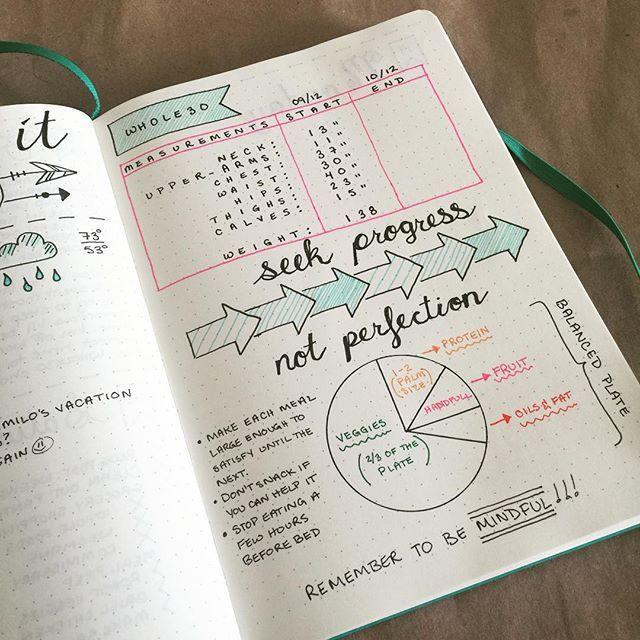 it
73°
53°
MILO'S VACATION
?
AIN
WHOLE30
09/12
10/12
MEASUREMENTS START END
NECK: 13"
UPPER-ARMS: 11"
CHEST: 37"
WAIST: 30"
HIPS: 40"
THIGHS: 23"
CALVES: 15"
WEIGHT: 138
seek progress
not perfection
• MAKE EACH MEAL
LARGE ENOUGH TO
SATISFY UNTIL THE
NEXT.
• DON'T SNACK IF
YOU CAN HELP IT
• STOP EATING A
FEW HOURS
BEFORE BED
VEGGIES
(2/3 OF THE
PLATE)
1-2
(PALM
SIZE)
PROTEIN
HANDFULL
FRUIT
OILS & FAT
BALANCED PLATE
REMEMBER TO BE MINDFUL!!!